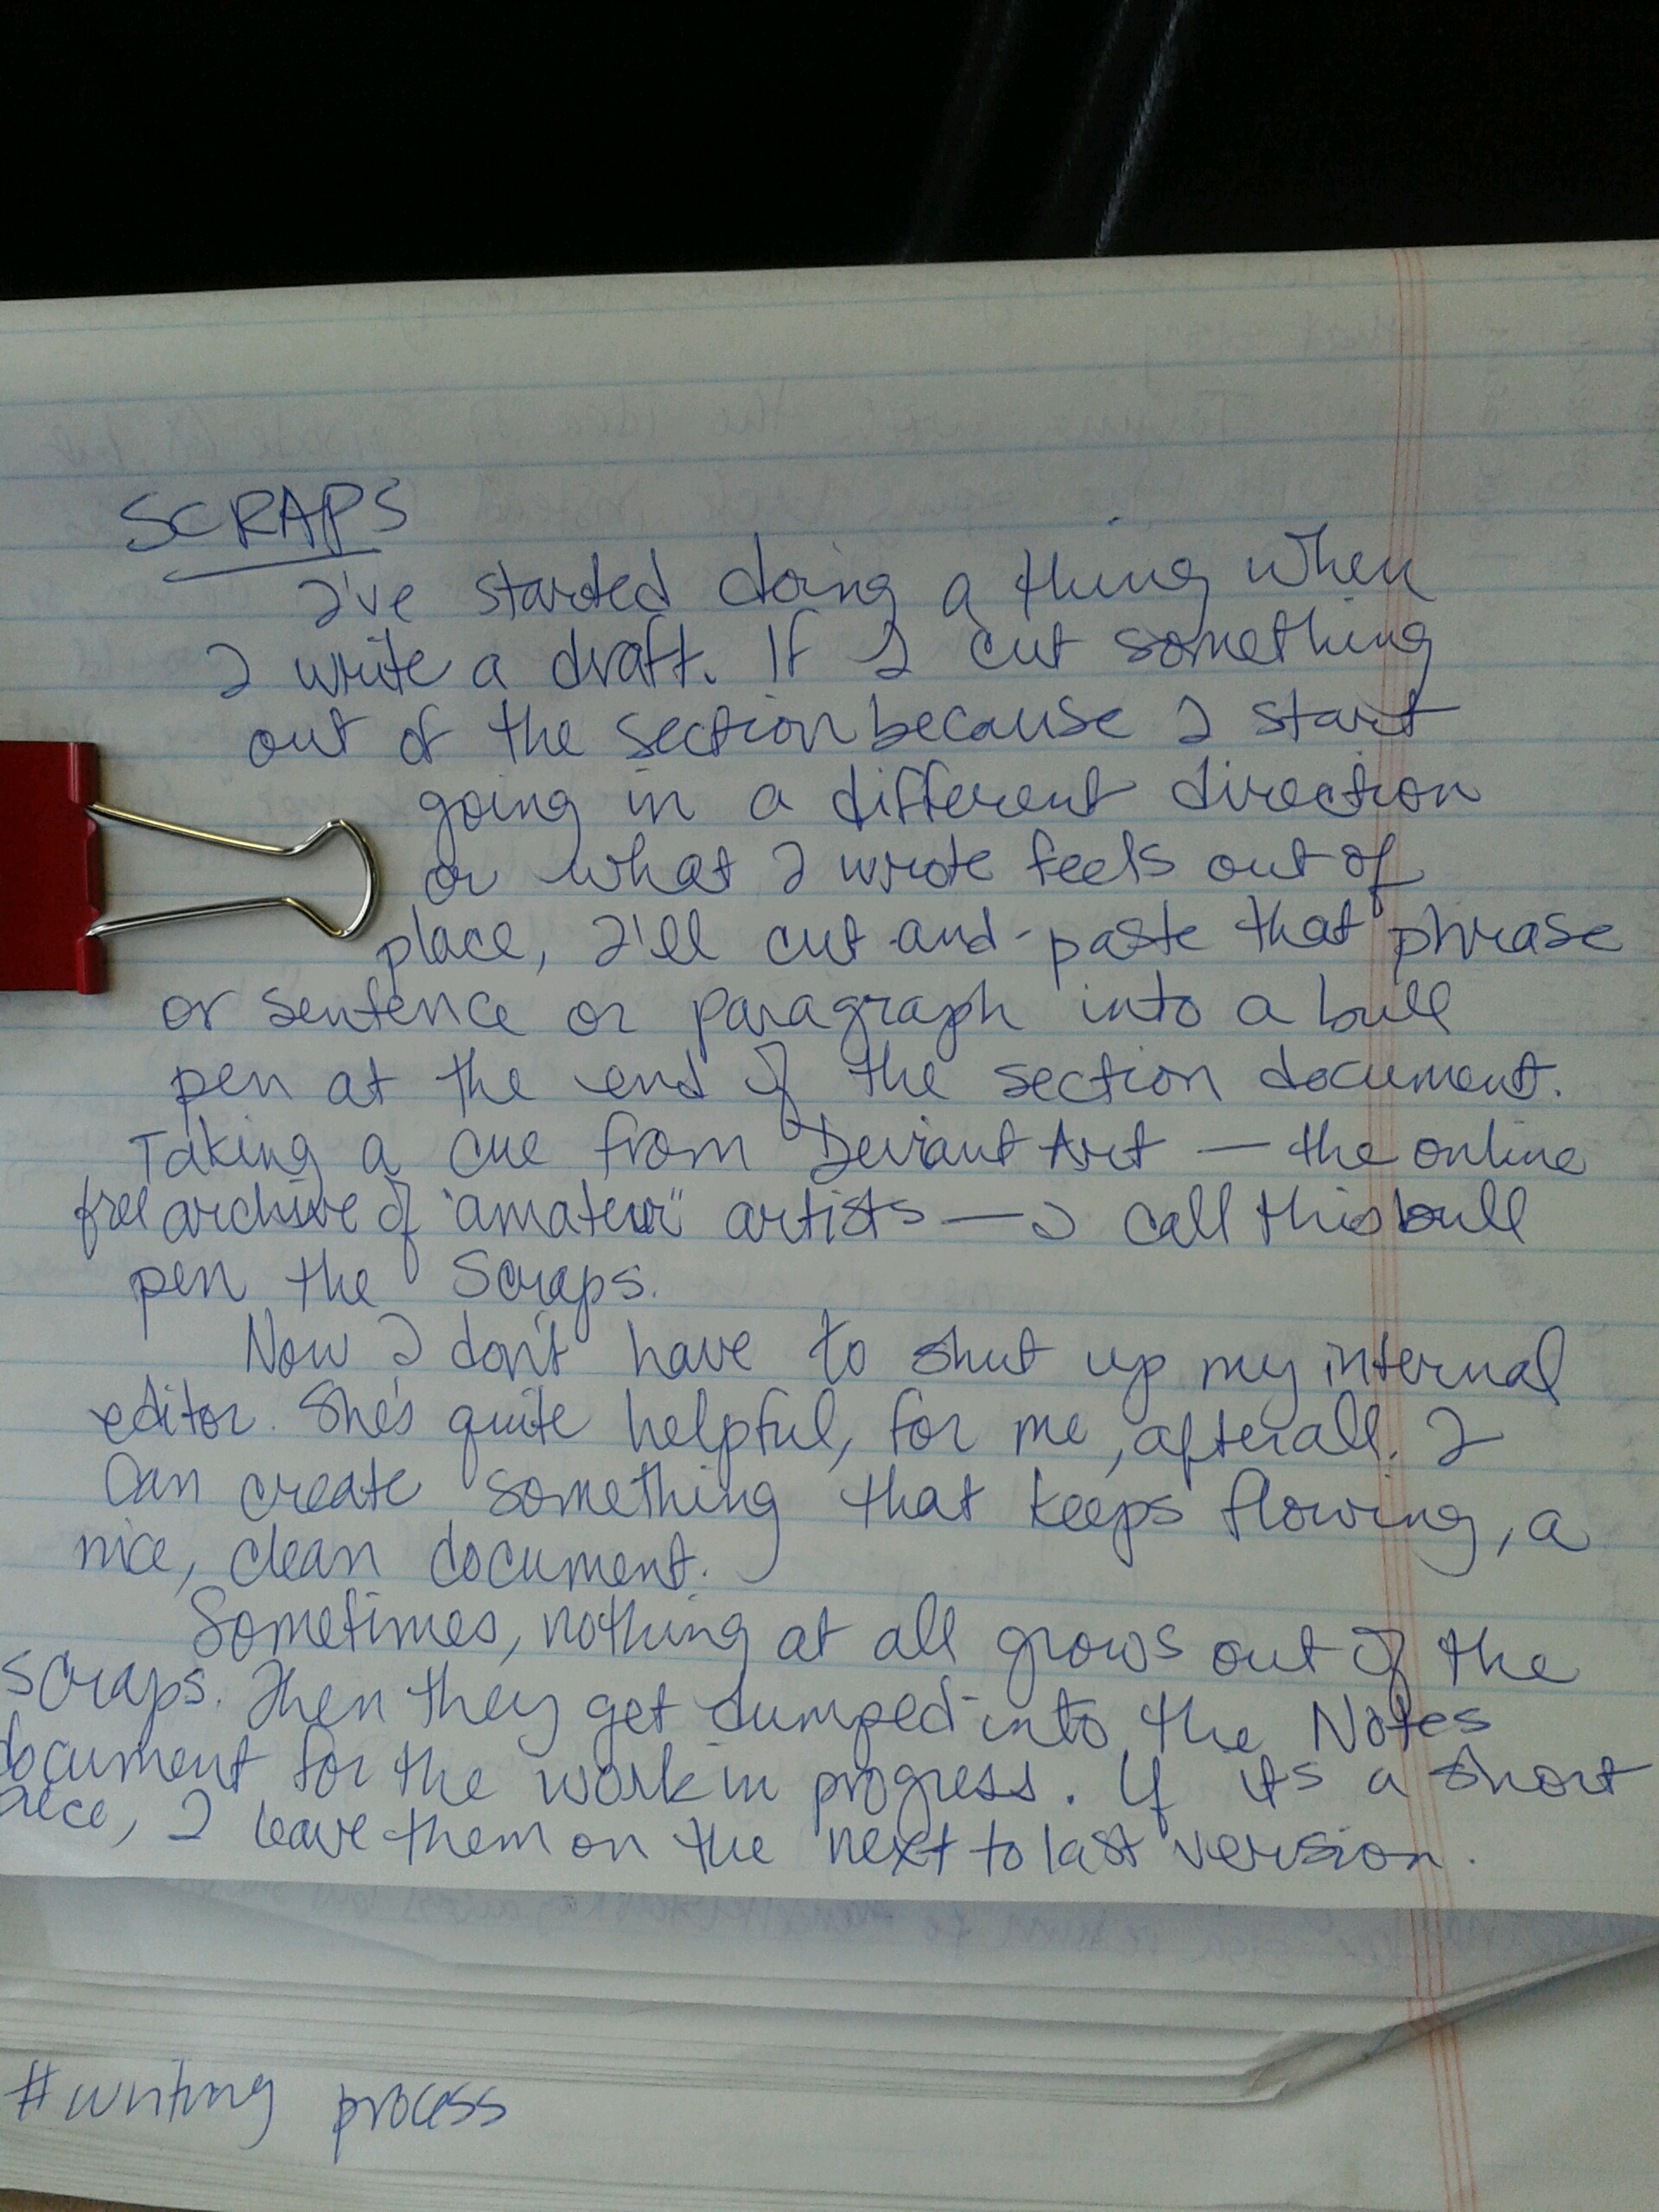 SCRAPS
I've started doing a thing when
I write a draft. If I cut something
out of the section because I start
going in a different direction
or what I wrote feels out of
place, I'll cut-and-paste that phrase
or sentence or paragraph into a bull
pen at the end of the section document.
Taking a cue from Deviant Art — the online
free archive of "amateur" artists — I call this bull
pen the Scraps.
Now I don't have to shut up my internal
editor. She's quite helpful, for me, afterall. I
can create something that keeps flowing, a
nice, clean document.
Sometimes, nothing at all grows out of the
scraps. Then they get dumped into the Notes
document for the work in progress. If its a short
piece, I leave them on the next to last version.
#writing process